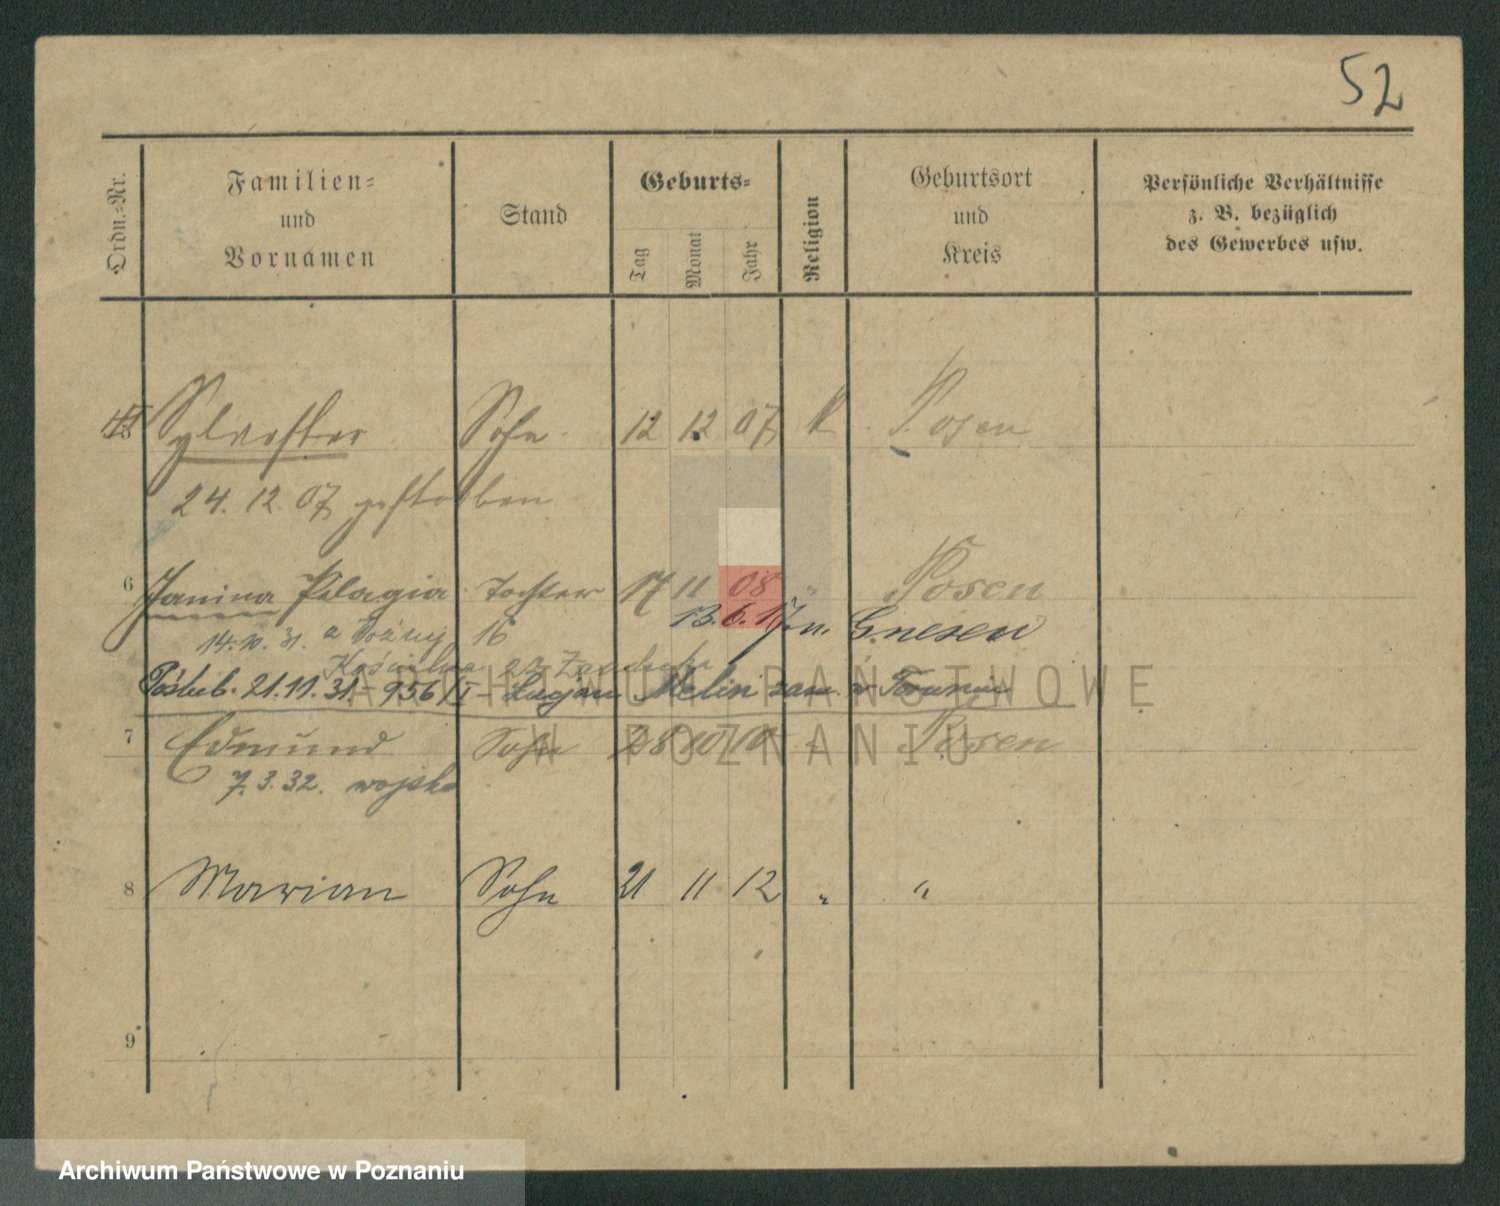 52
Ordn.-Nr.
Familien-
und
Vornamen
Stand
Geburts-
Tag
Monat
Jahr
Religion
Geburtsort
und
Kreis
Persönliche Verhältnisse
z. B. bezüglich
des Gewerbes usw.
5 Sylvester Sohn 12 12 07 k Posen
24. 12. 07 gestorben
6 Janina Pelagia Tochter 17 11 08 " Posen
13. 6. 17 n. Gnesen
14. 10. 31. z
Poślub. 21.11.31 - 956/II - Lucjan Melin zam. w Toruniu
7 Edmund Sohn 28 10 10 " Posen
7. 3. 32. wojsko
8 Marian Sohn 21 11 12 " "
9
ARCHIWUM PAŃSTWOWE
W POZNANIU
Archiwum Państwowe w Poznaniu